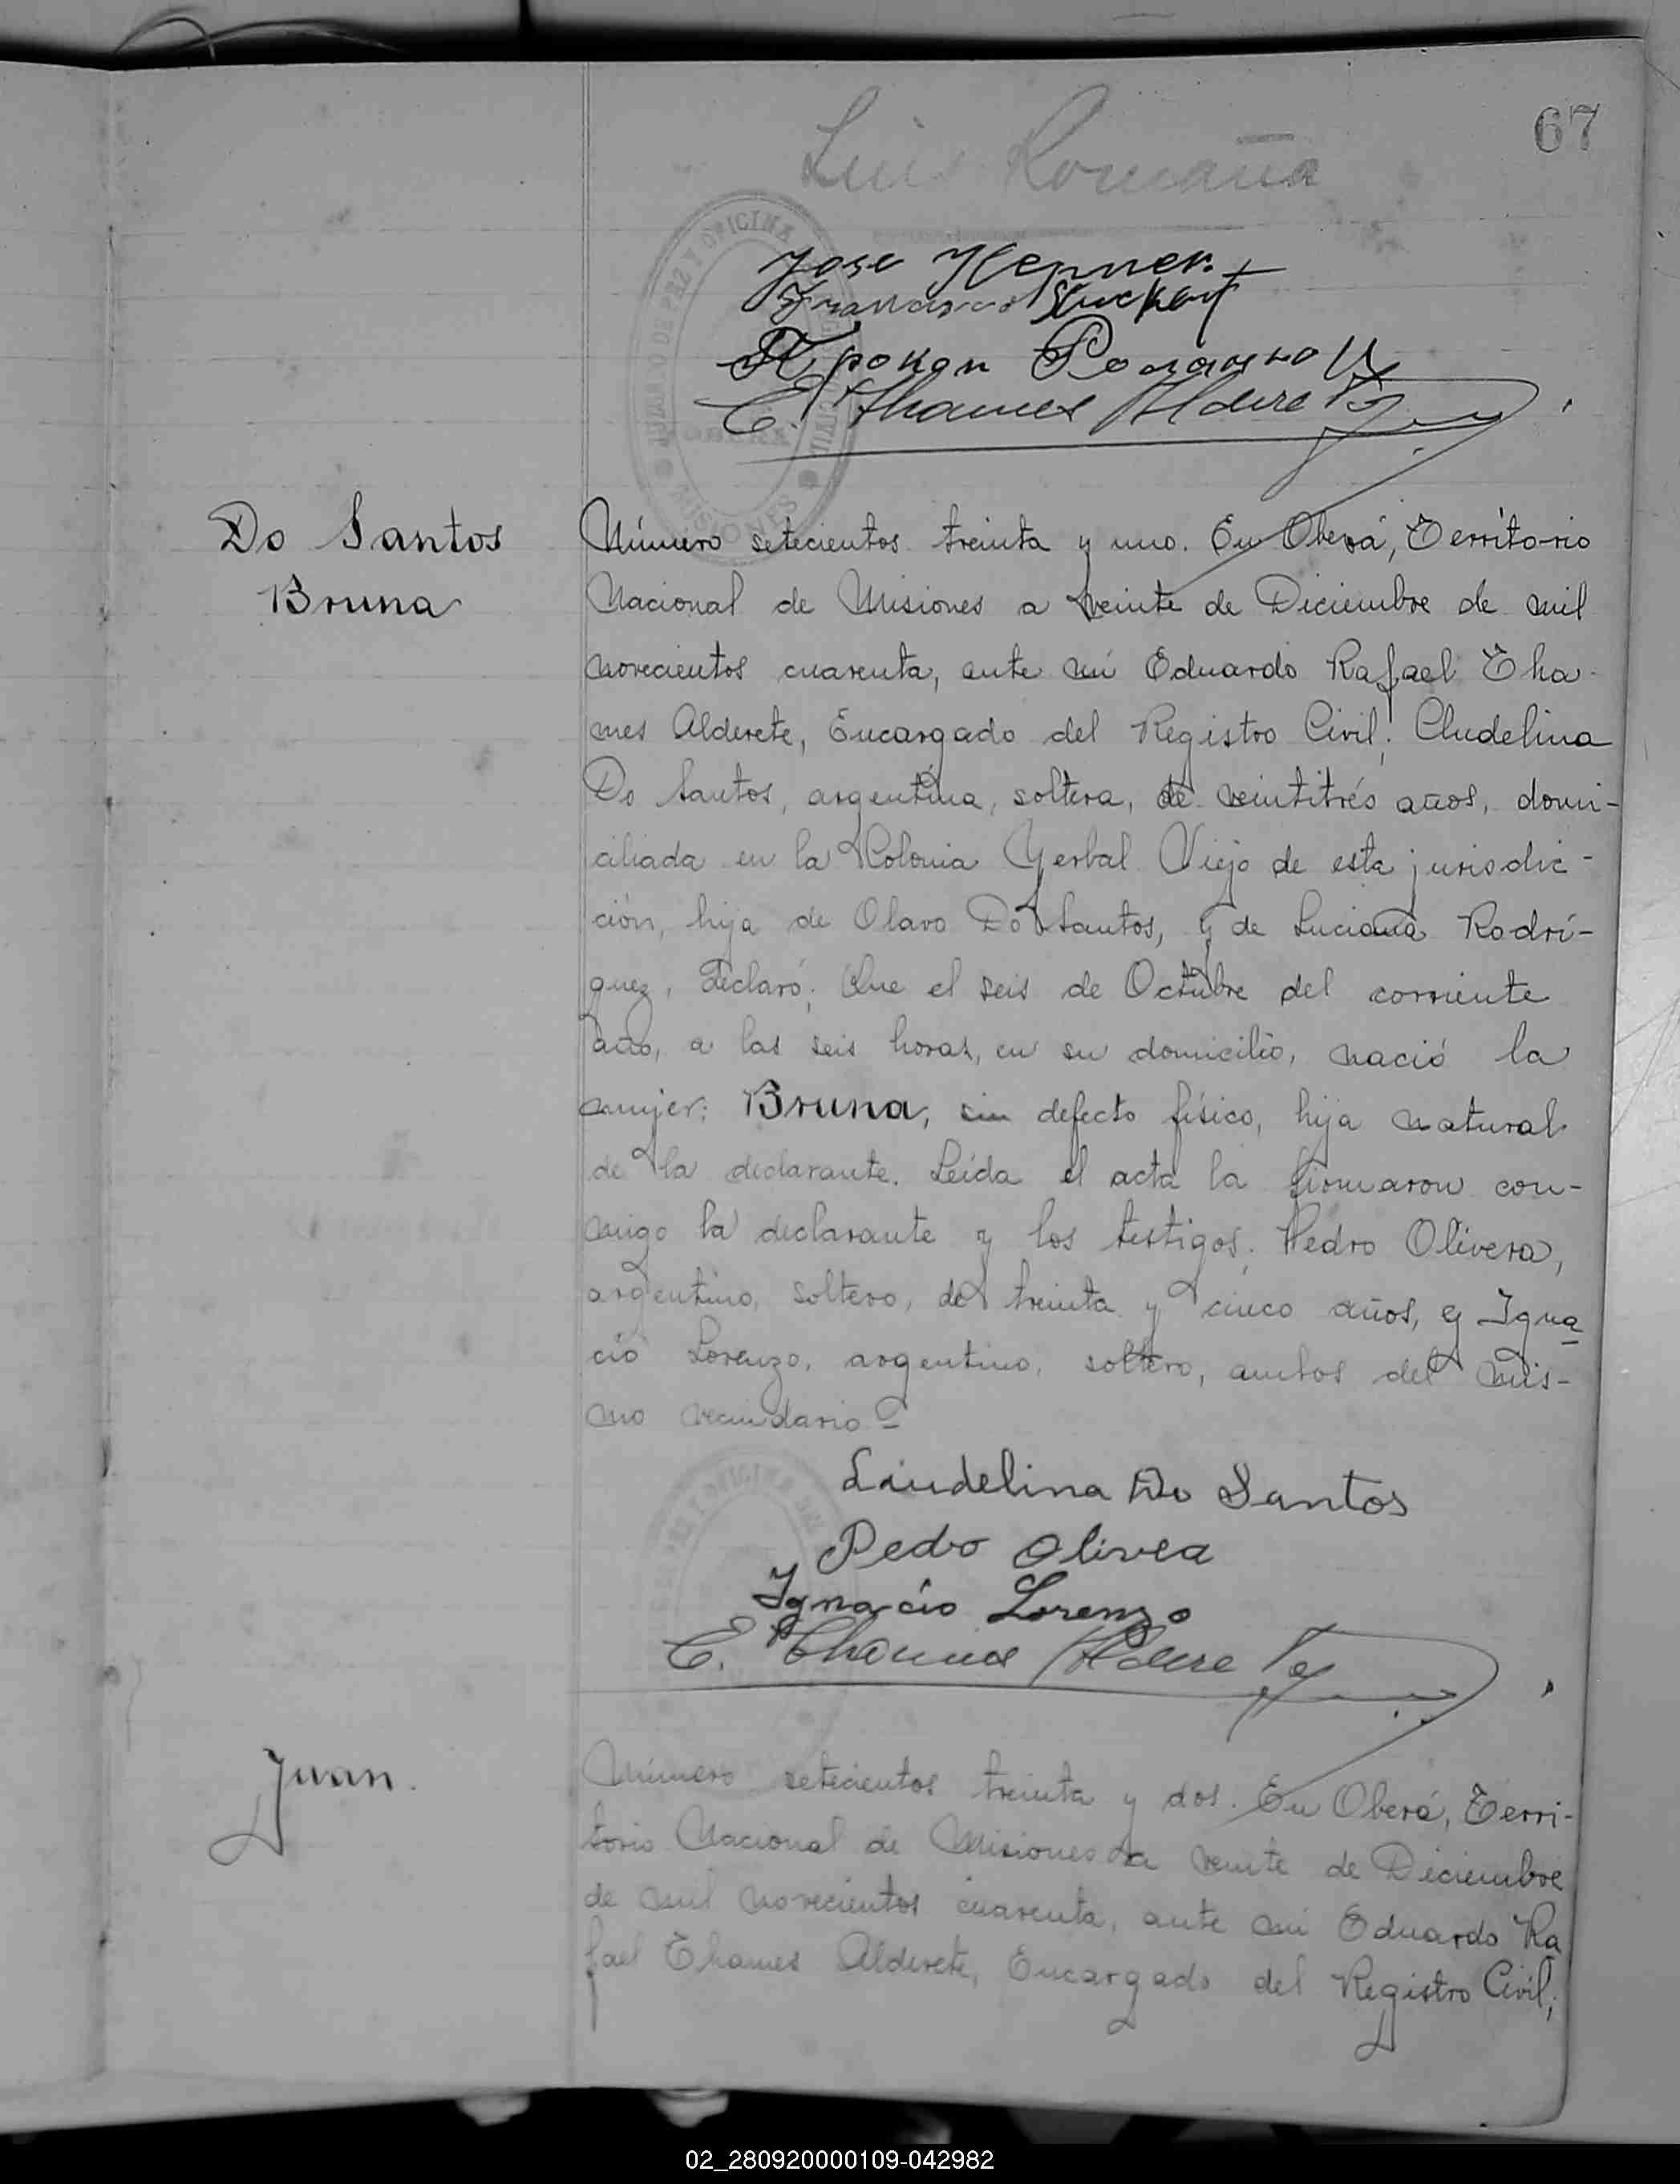 67
Luis Romaña
JUZGADO DE PAZ Y OFICINA
MISIONES
Jose Hepner
Francisco Stuckert
E. Thames Alderete
Do Santos
Bruna
Número setecientos treinta y uno. En Oberá, Territorio
Nacional de Misiones a veinte de Diciembre de mil
novecientos cuarenta, ante mí Eduardo Rafael Tha-
mes Alderete, Encargado del Registro Civil; Cludelina
Do Santos, argentina, soltera, de veintitrés años, domi-
ciliada en la Colonia Yerbal Viejo de esta jurisdic-
ción, hija de Olavo Do Santos, y de Luciana Rodrí-
guez, declaró: Que el seis de Octubre del corriente
año, a las seis horas, en su domicilio, nació la
mujer: Bruna, sin defecto físico, hija natural
de la declarante. Leída el acta la firmaron con-
migo la declarante y los testigos: Pedro Olivera,
argentino, soltero, de treinta y cinco años, y Igna
cio Lorenzo, argentino, soltero, ambos del mis-
mo vecindario=
Liudelina Do Santos
Pedro Olivea
Ignacio Lorenzo
E. Thames Alderete
Juan.
Número setecientos treinta y dos. En Oberá, Terri-
torio Nacional de Misiones a veinte de Diciembre
de mil novecientos cuarenta, ante mí Eduardo Ra
fael Thames Alderete, Encargado del Registro Civil;
02_280920000109-042982